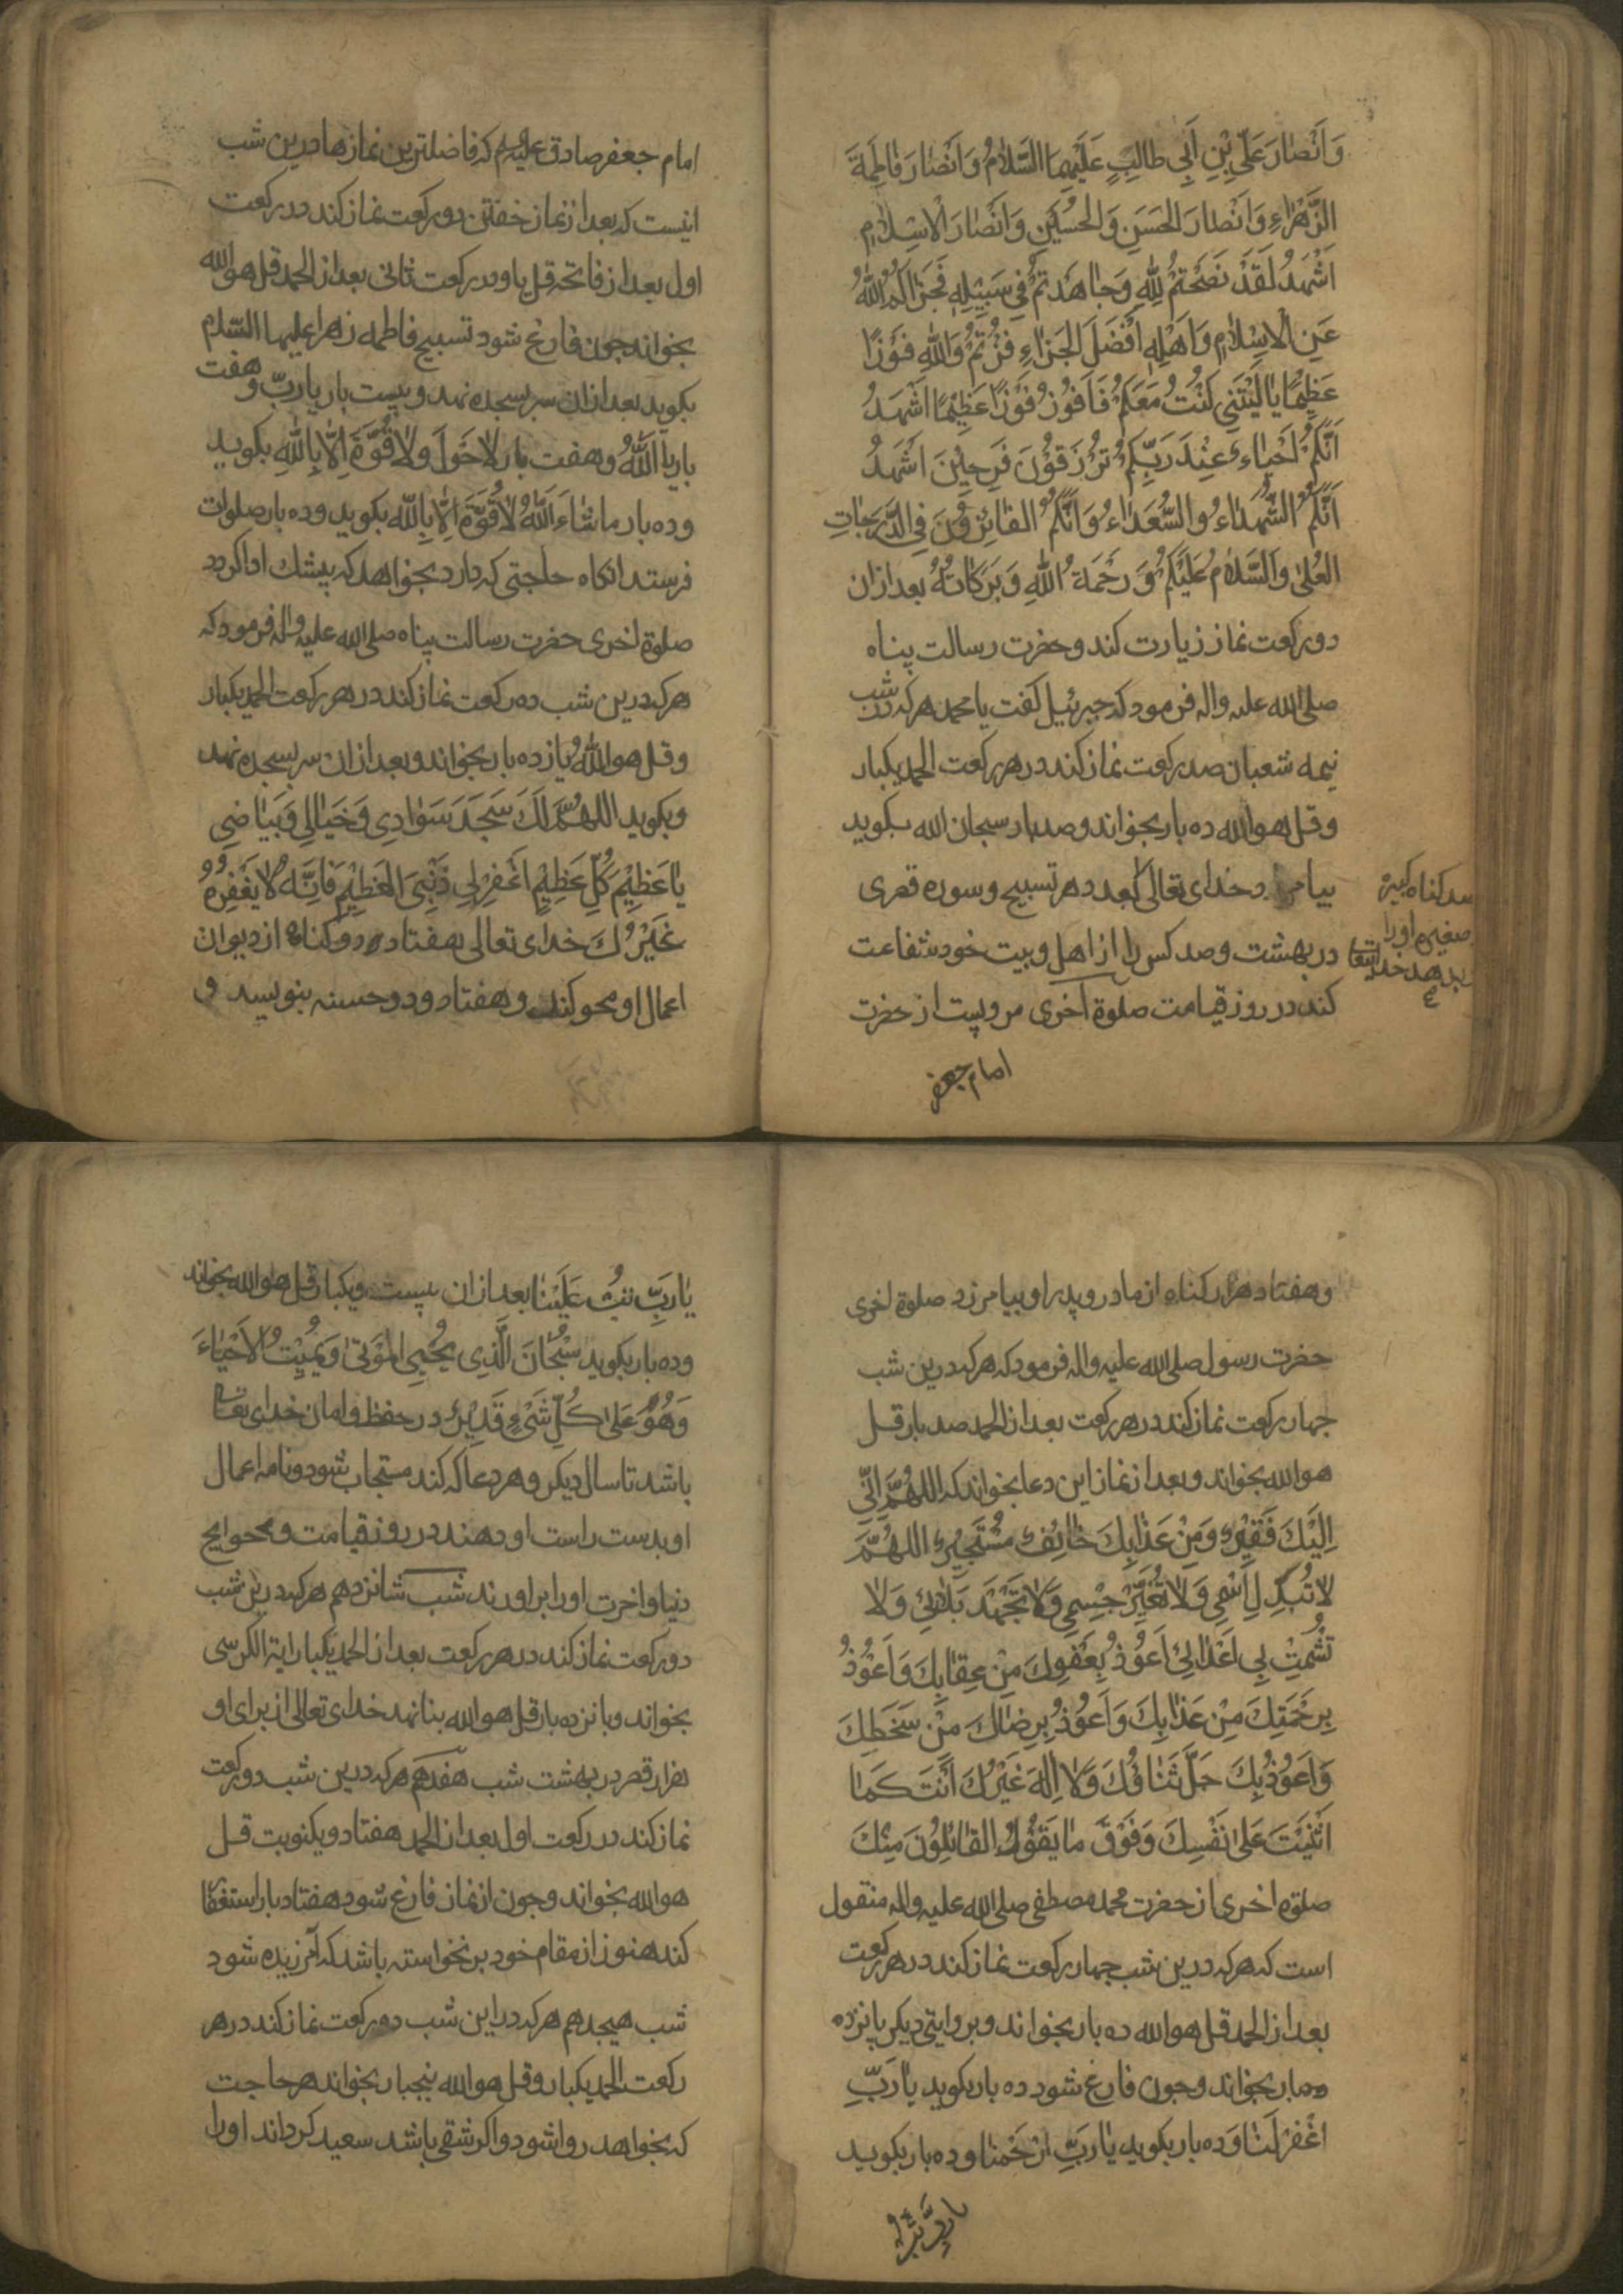 وَاَنْصَارَ عَلِيِّ بْنِ اَبِي طالِبٍ عَلَيْهِمَا السَّلامُ وَاَنْصَارَ فَاطِمَةَ
الزَّهْرَاءِ وَاَنْصَارَ الْحَسَنِ وَالْحُسَيْنِ وَاَنْصَارَ الْاِسْلَامِ
اَشْهَدُ لَقَدْ نَصَحْتُمْ لِلّٰهِ وَجَاهَدْتُمْ فِي سَبِيْلِهِ فَجَزَاكُمُ اللّٰهُ
عَنِ الْاِسْلَامِ وَاَهْلِهِ اَفْضَلَ الْجَزَاءِ فُزْتُمْ وَاللّٰهِ فَوْزًا
عَظِيْمًا يَا لَيْتَنِي كُنْتُ مَعَكُمْ فَاَفُوْزُ فَوْزًا عَظِيْمًا اَشْهَدُ
اَنَّكُمْ اَحْيَاءٌ عِنْدَ رَبِّكُمْ تُرْزَقُوْنَ فَرِحِيْنَ اَشْهَدُ
اَنَّكُمُ الشُّهَدَاءُ وَالسُّعَدَاءُ وَاَنَّكُمُ الْفَائِزُوْنَ فِي الدَّرَجَاتِ
الْعُلٰى وَالسَّلَامُ عَلَيْكُمْ وَرَحْمَةُ اللّٰهِ وَبَرَكَاتُهُ بعد ازان
دو ركعت نماز زيارت كند و حضرت رسالت پناه
صلى الله عليه واله فرمود كه جبرئيل كفت يا محمد هركه در شب
نيمه شعبان صد ركعت نماز كند در هر ركعت الحمد يكبار
و قل هو الله ده بار بخواند و صد بار سبحان الله بكويد
بيامرزد خداى تعالى بعدد هر تسبيح و سوره قصرى
در بهشت و صد كس را از اهل و بيت خود شفاعت
كند در روز قيامت صلوة اخرى مرويست از حضرت
صد كناه كبيره
صغيره اورا
بدهد خدايتعا
امام جعفر
امام جعفر صادق عليه السلم كه فاضلترين نمازها درين شب
اينست كه بعد از نماز خفتن دو ركعت نماز كند در ركعت
اول بعد از فاتحه قل يا و در ركعت ثانى بعد از الحمد قل هو الله
بخواند چون فارغ شود تسبيح فاطمه زهرا عليها السلام
بكويد بعد ازان سر بسجده نهد و بيست بار يا ربّ و هفت
بار يا اَللّٰهُ و هفت بار لا حَوْلَ وَلا قُوَّةَ اِلّا بِاللّٰهِ بكويد
و ده بار ماشَاءَ اللّٰهُ لا قُوَّةَ اِلّا بِاللّٰه بكويد و ده بار صلوات
فرستد انكاه حاجتى كه دارد بخواهد كه بيشك ادا كردد
صلوة اخرى حضرت رسالت پناه صلى الله عليه واله فرمود كه
هركه درين شب ده ركعت نماز كند در هر ركعت الحمد يكبار
و قل هو اللّٰهُ يازده بار بخواند و بعد ازان سر بسجده نهد
و بكويد اللهُمَّ لَكَ سَجَدَ سَوَادِي وَخَيَالِي وَبَيَاضِي
يَا عَظِيْمَ كُلِّ عَظِيْمٍ اغْفِرْ لِي ذَنْبِيَ الْعَظِيْمَ فَاِنَّهُ لَا يَغْفِرُهُ
غَيْرُكَ خداى تعالى هفتاد و دو كناه از ديوان
اعمال او محو كند و هفتاد و دو حسنه بنويسد و
وهفتاد هزار كناه از مادر و پدر او بيامرزد صلوة اخرى
حضرت رسول صلى الله عليه واله فرمود كه هركه درين شب
چهار ركعت نماز كند در هر ركعت بعد از الحمد صد بار قل
هو الله بخواند و بعد از نماز اين دعا بخواند كه اللهُمَّ اِنِّي
اِلَيْكَ فَقِيْرٌ وَمِنْ عَذَابِكَ خَائِفٌ مُسْتَجِيْرٌ اللهُمَّ
لا تُبَدِّلْ اِسْمِي وَلا تُغَيِّرْ جِسْمِي وَلا تَجْهَدْ بَلَائِي وَلَا
تُشْمِتْ بِي اَعْدَائِي اَعُوْذُ بِعَفْوِكَ مِنْ عِقَابِكَ وَاَعُوْذُ
بِرَحْمَتِكَ مِنْ عَذَابِكَ وَاَعُوْذُ بِرِضَاكَ مِنْ سَخَطِكَ
وَاَعُوْذُ بِكَ جَلَّ ثَنَاؤُكَ وَلا اِلٰهَ غَيْرُكَ اَنْتَ كَمَا
اَثْنَيْتَ عَلٰى نَفْسِكَ وَفَوْقَ مَا يَقُوْلُ الْقَائِلُوْنَ مِنْكَ
صلوة اخرى از حضرت محمد مصطفى صلى الله عليه واله منقول
است كه هركه درين شب چهار ركعت نماز كند در هر ركعت
بعد از الحمد قل هو الله ده بار بخواند و بروايتى ديكر پانزده
بار بخواند و چون فارغ شود ده بار بكويد يَا رَبِّ
اغْفِرْ لَنَا و ده بار بكويد يَا رَبِّ ارْحَمْنَا و ده بار بكويد
يا رَبِّ تُبْ
يَا رَبِّ تُبْ عَلَيْنَا بعد ازان بيست و يكبار قل هو الله بخواند
و ده بار بكويد سُبْحَانَ الَّذِي يُحْيِي الْمَوْتٰى وَيُمِيْتُ الْاَحْيَاءَ
وَهُوَ عَلٰى كُلِّ شَيْءٍ قَدِيْرٌ در حفظ و امان خداى تعا
باشد تا سال ديكر و هر دعا كه كند مستجاب شود و نامه اعمال
او بدست راست او دهند در روز قيامت و حوايج
دنيا و اخرت او را براورند شب شانزدهم هركه درين شب
دو ركعت نماز كند در هر ركعت بعد از الحمد يكبار اية الكرسى
بخواند و پانزده بار قل هو الله بنا نهد خداى تعالى از براى او
هزار قصر در بهشت شب هفدهم هركه درين شب دو ركعت
نماز كند در ركعت اول بعد از الحمد هفتاد و يكنوبت قل
هو الله بخواند و چون از نماز فارغ شود هفتاد بار استغفار
كند هنوز از مقام خود برنخواسته باشد كه آمرزيده شود
شب هيجدهم هركه در اين شب دو ركعت نماز كند در هر
ركعت الحمد يكبار و قل هو الله پنجبار بخواند هر حاجت
كه بخواهد روا شود و اكر شقى باشد سعيد كرداند او را